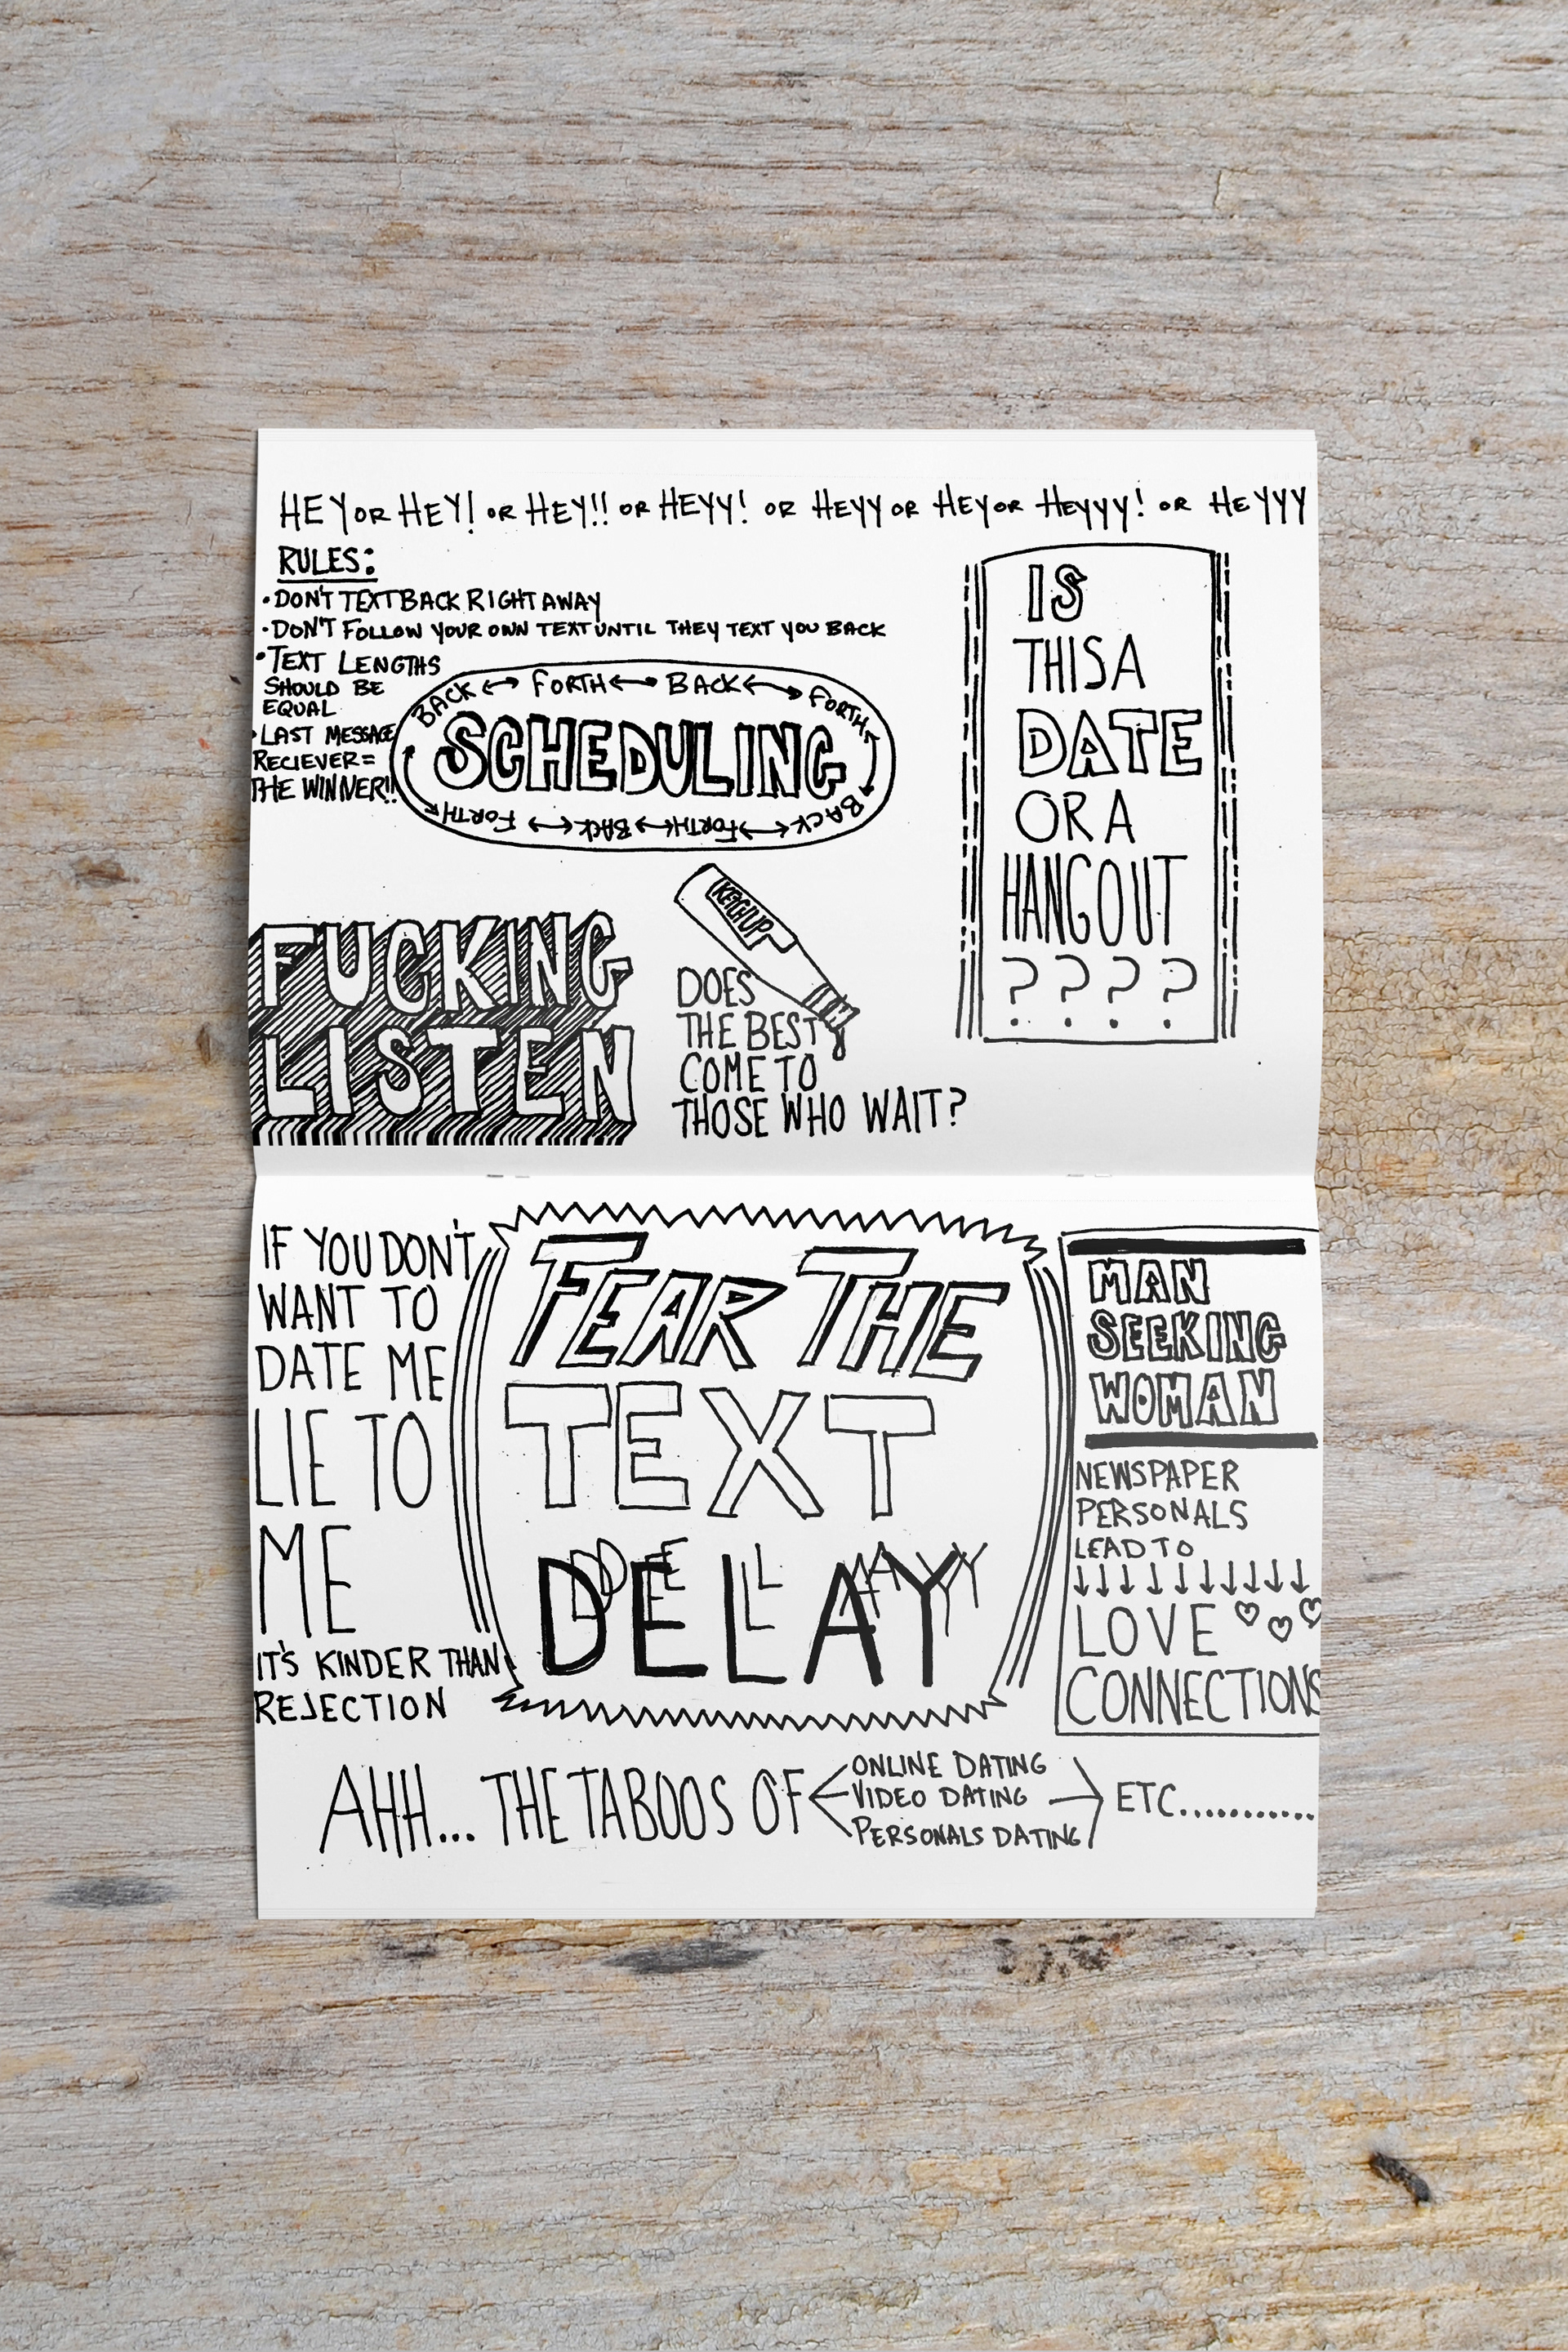 HEY OR HEY! OR HEY!! OR HEYY! OR HEYY OR HEY OR HEYYY! OR HEYYY
RULES:
•DON'T TEXT BACK RIGHT AWAY
•DON'T FOLLOW YOUR OWN TEXT UNTIL THEY TEXT YOU BACK
•TEXT LENGTHS
SHOULD BE
EQUAL
•LAST MESSAGE
RECIEVER =
THE WINNER!!
BACK ↔ FORTH ↔ BACK ↔ FORTH ↔ BACK ↔ FORTH ↔ BACK ↔ FORTH
SCHEDULING
IS
THIS A
DATE
OR A
HANGOUT
????
FUCKING
LISTEN
KETCHUP
DOES
THE BEST
COME TO
THOSE WHO WAIT?
IF YOU DON'T
WANT TO
DATE ME
LIE TO
ME
IT'S KINDER THAN
REJECTION
FEAR THE
TEXT
DELAY
MAN
SEEKING
WOMAN
NEWSPAPER
PERSONALS
LEAD TO
↓↓↓↓↓↓↓↓↓↓
LOVE ♡♡♡
CONNECTIONS
AHH... THE TABOOS OF
ONLINE DATING
VIDEO DATING
PERSONALS DATING
ETC............